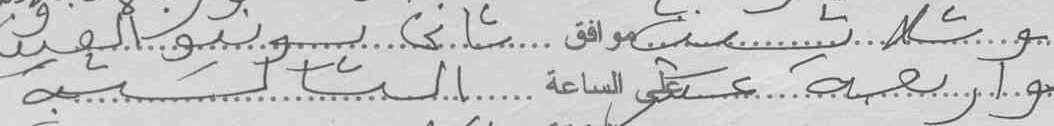 وثلاثين موافق ثاني يونيو ألفين
وأربعة عشر على الساعة الثالثة